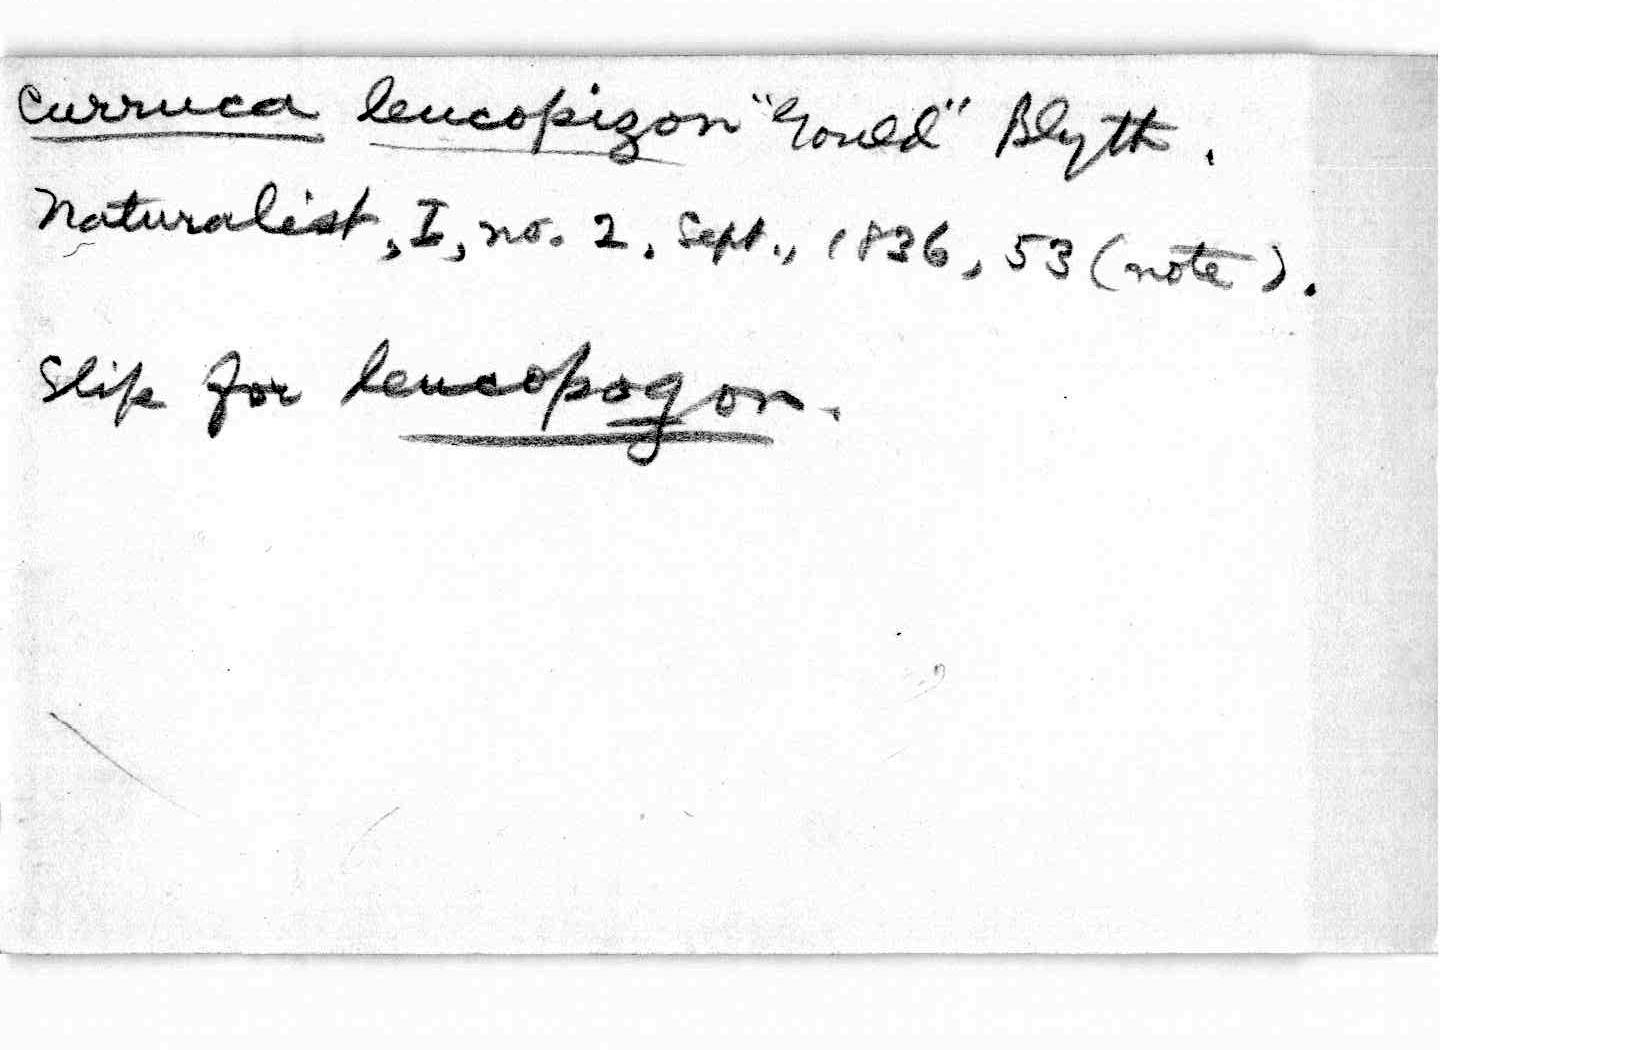 Curruca leucopizon "Gould" Blyth.
Naturalist, I, no. 2. Sept., 1836, 53 (note).
Slip for leucopogon.